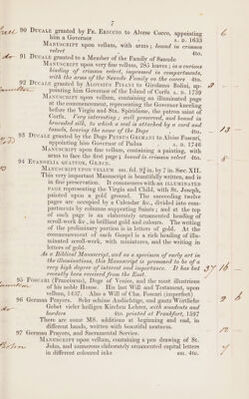 7
90 DUCALE granted by FR. ERICCIO to Alvese Cocco, appointing
him a Governor A. D. 1633
MANUSCRIPT upon vellum, with arms; bound in crimson
velvet 4to.
91 DUCALE granted to a Member of the Family of Sanudo
MANUSCRIPT upon very fine vellum, 285 leaves; in a curious
binding of crimson velvet, impressed in compartments,
with the arms of the Sanudo Family on the covers 4to.
92 DUCALE granted by ALOYSIUS PISANI to Girolamo Bolini, ap-
pointing him Governor of the Island of Corfu A. D. 1739
MANUSCRIPT upon vellum, containing an illuminated page
at the commencement, representing the Governor kneeling
before the Virgin and Sta. Spiridione, the patron saint of
Corfu. Very interesting; well preserved, and bound in
brocaded silk, to which a seal is attached by a cord and
tassels, bearing the name of the Doge 4to.
93 DUCALE granted by the Doge PIETRO GRIMANI to Aloise Foscari,
appointing him Governor of Padua A. D. 1746
MANUSCRIPT upon fine vellum, containing a painting, with
arms to face the first page; bound in crimson velvet 4to.
94 EVANGELIA QUATUOR, GRÆCE.
MANUSCRIPT UPON VELLUM fol. 9¾ in. by 7 in. Sæc. XII.
This very important Manuscript is beautifully written, and is
in fine preservation. It commences with an ILLUMINATED
PAGE representing the Virgin and Child, with St. Joseph,
painted upon a gold ground. The succeeding twelve
pages are occupied by a Calendar &c., divided into com-
partments by columns supporting Saints; and at the top
of each page is an elaborately ornamented heading of
scroll-work &c., in brilliant gold and colours. The writing
of the preliminary portion is in letters of gold. At the
commencement of each Gospel is a rich heading of illu-
minated scroll-work, with miniatures, and the writing in
letters of gold.
As a Biblical Manuscript, and as a specimen of early art in
the illuminations, this Manuscript is presumed to be of a
very high degree of interest and importance. It has but
recently been received from the East.
95 FOSCARI (Francisco), Doge of Venice, and the most illustrious
of his noble House. His last Will and Testament, upon
vellum, 1457. Also a Will of Chs. Foscari (imperfect)
96 GERMAN PRAYERS. Sehr schöne Andächtige, und gantz Wörtliche
Gebet vieler heiligen Kirchen Lehrer, with woodcuts and
borders 4to. printed at Frankfort, 1597
There are some MS. additions at beginning and end, in
different hands, written with beautiful neatness.
97 GERMAN PRAYERS, and Sacramental Service.
MANUSCRIPT upon vellum, containing a pen drawing of St.
John, and numerous elaborately ornamented capital letters
in different coloured inks sm. 4to.
6
13
4
37 16
2
10
7